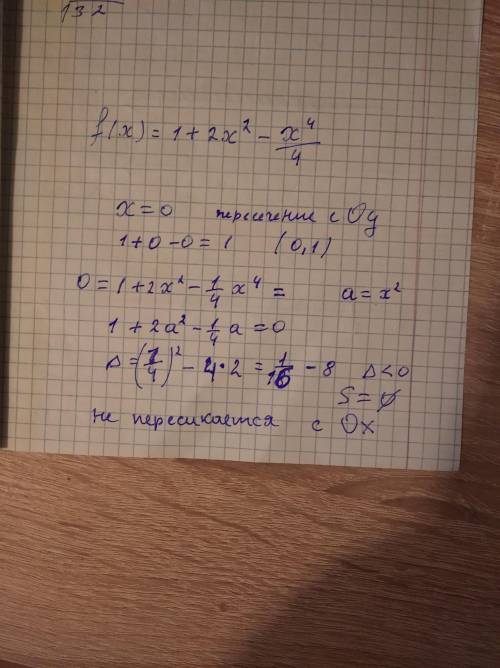 132
f(x) = 1 + 2x² - x⁴/4
x = 0 пересечение с Oy
1 + 0 - 0 = 1 (0,1)
0 = 1 + 2x² - 1/4 x⁴ = a = x²
1 + 2a² - 1/4 a = 0
Δ = (1/4)² - 4·2 = 1/16 - 8 Δ < 0
S = ∅
не пересикается с Ox